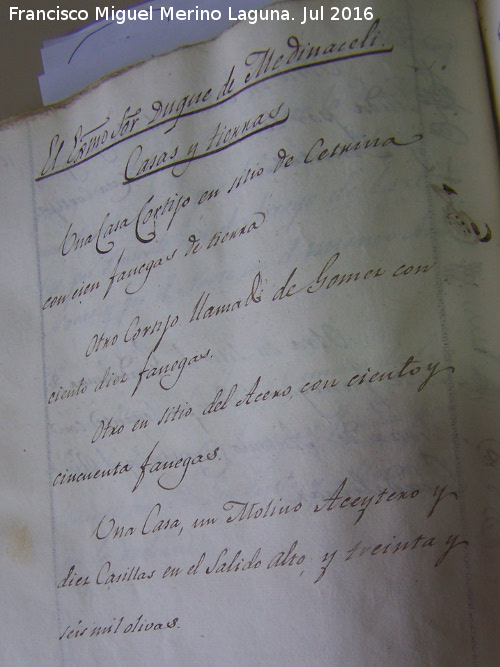 Francisco Miguel Merino Laguna. Jul 2016
El Exmo Sor Duque de Medinaceli.
Casas y tierras
Una Casa Cortijo en sitio de Cetrina
con cien fanegas de tierra
Otro Cortijo llamado de Gomez con
ciento diez fanegas.
Otro en sitio del Acero, con ciento y
cincuenta fanegas.
Una Casa, un Molino Aceytero y
diez Casillas en el Salido alto, y treinta y
seis mil olivas.